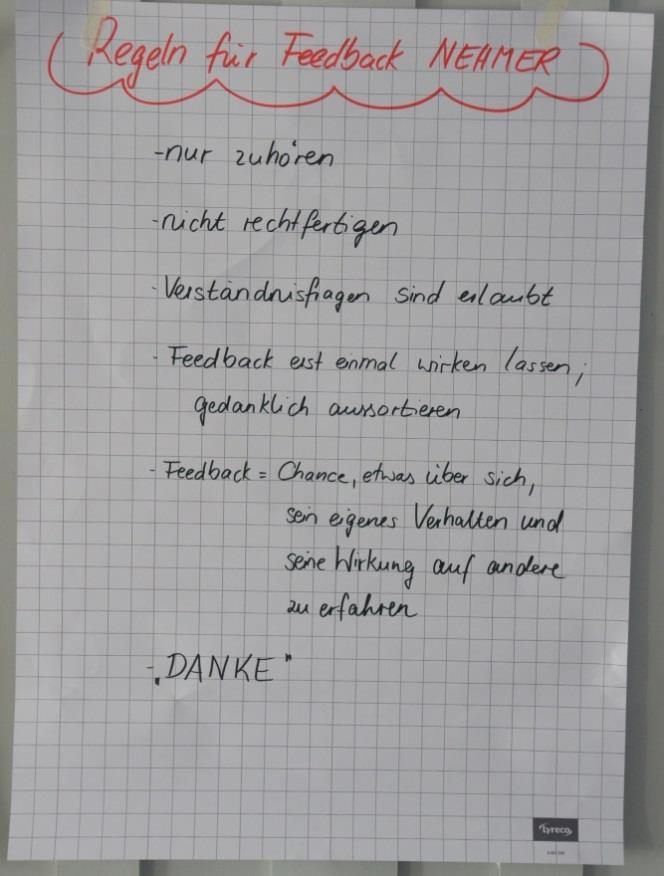 Regeln für Feedback NEHMER
- nur zuhören
- nicht rechtfertigen
- Verständnisfragen sind erlaubt
- Feedback erst einmal wirken lassen;
gedanklich aussortieren
- Feedback = Chance, etwas über sich,
sein eigenes Verhalten und
seine Wirkung auf andere
zu erfahren
- „DANKE"
Lyreco